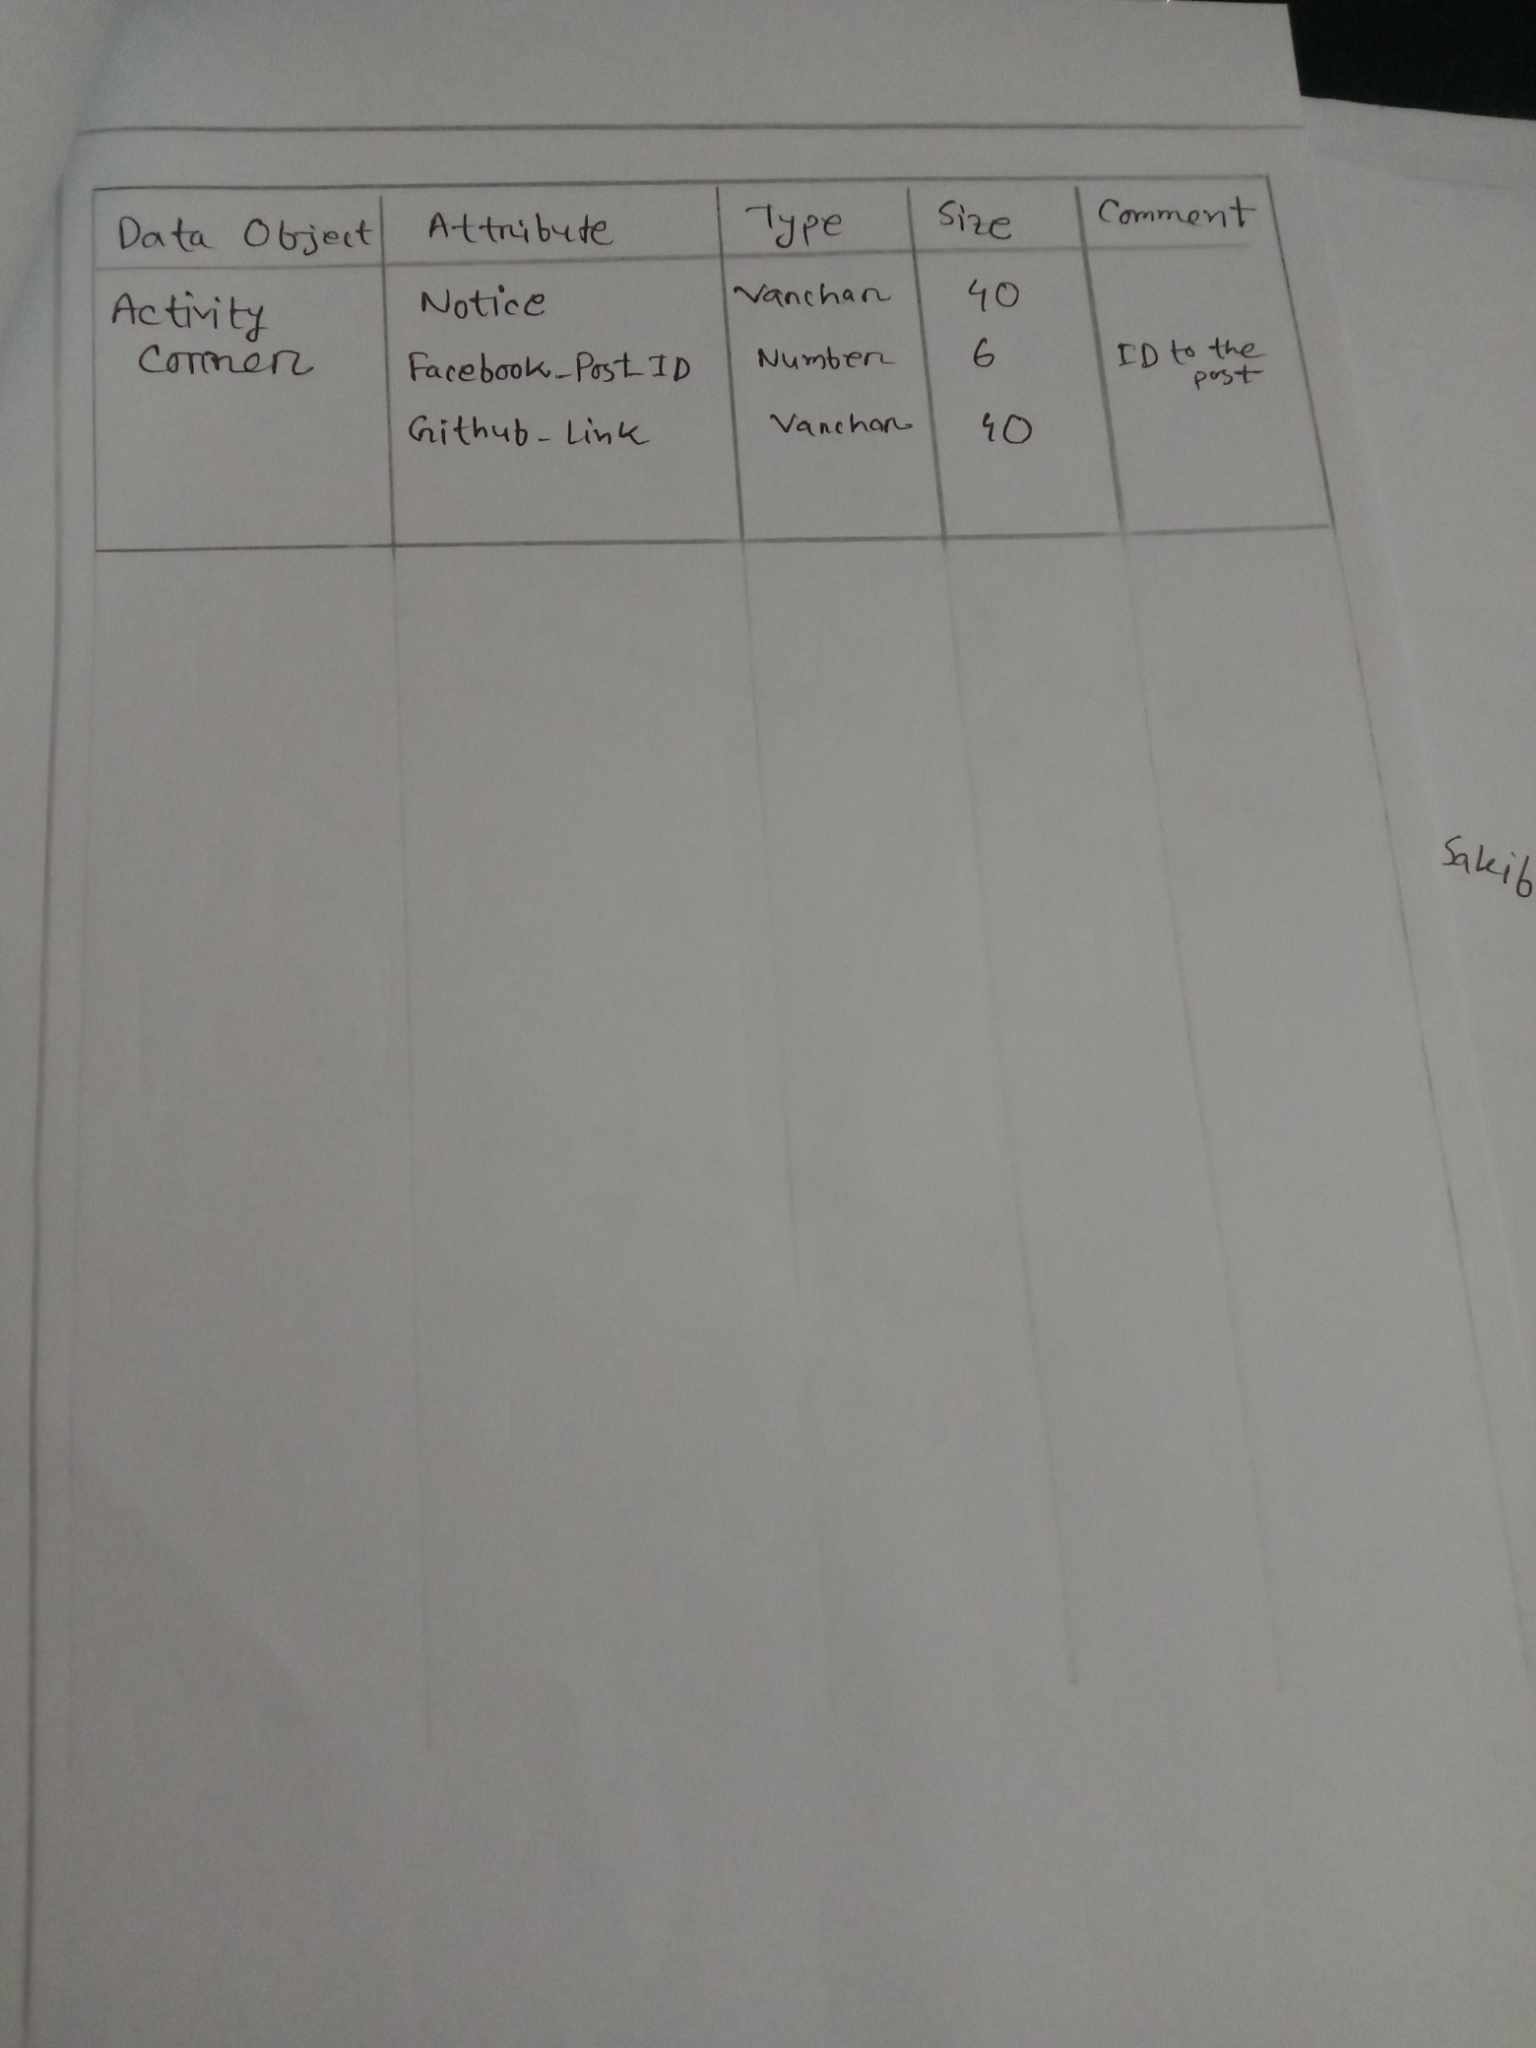 Data Object Attribute Type Size Comment
Activity Notice Varchar 40
Corner Facebook_Post_ID Number 6 ID to the
post
Github_Link Varchar 40
Sakib